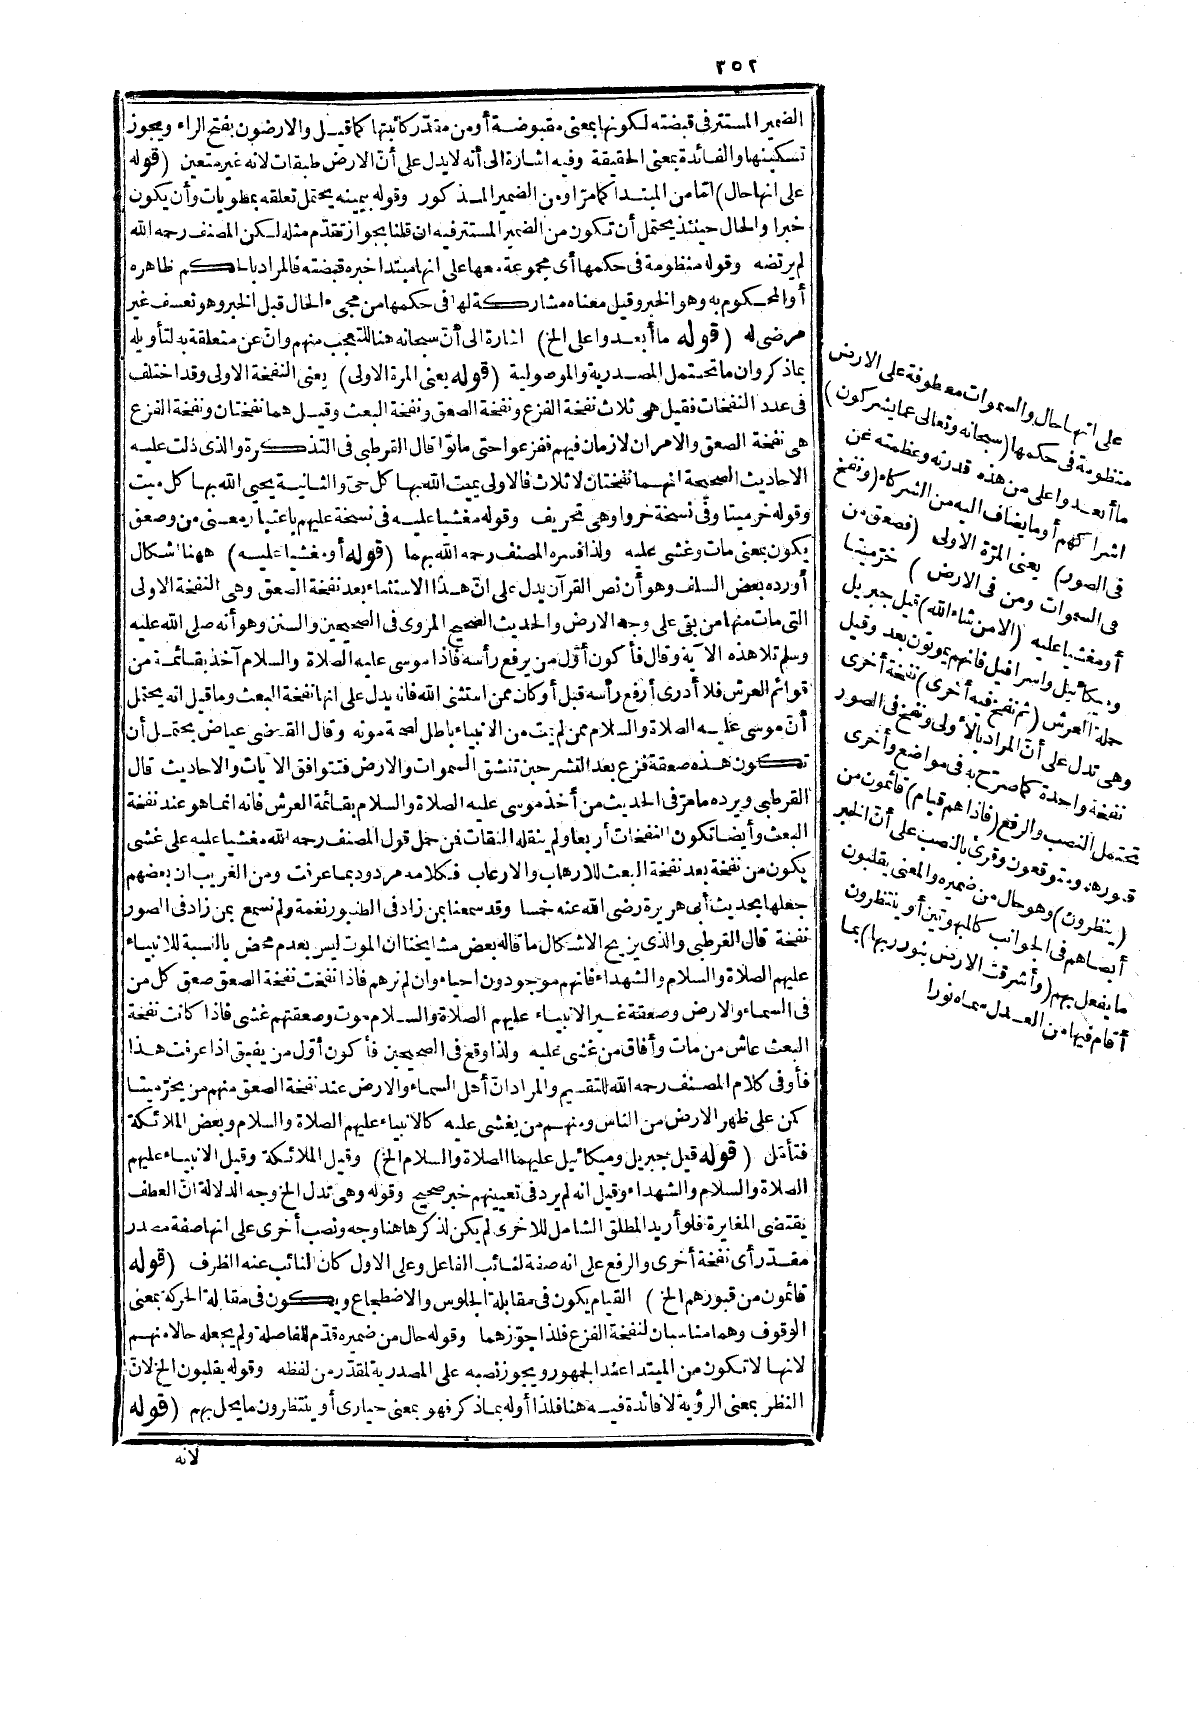 ٣٥٢
الضمير المستتر فى قبضته لكونها بمعنى مقبوضة أو من مقدّر كائبتها كما قيل والارضون بفتح الراء ويجوز
تسكينها والفائدة بمعنى الحقيقة وفيه اشارة الى أنه لا يدل على أنّ الارض طبقات لانه غير متعين (قوله
على انها حال) امّا من المبتدا كما مرّ او من الضمير المذكور وقوله بيمينه يحتمل تعلقه بمطويات وأن يكون
خبرا والحال حينئذ يحتمل أن تكون من الضمير المستتر فيه ان قلنا بجواز تقدّم مثله لكن المصنف رحمه الله
لم يرتضه وقوله منظومة فى حكمها أى مجموعة معها على انها مبتدا خبره قبضته فالمراد بالحكم ظاهره
أو المحكوم به وهو الخبر وقيل معناه مشاركة لها فى حكمها من مجىء الحال قبل الخبر وهو تعسف غير
مرضى له (قوله ما أبعد وا على الخ) اشارة الى أنّ سبحانه هنا للتعجب منهم وانّ عن متعلقة به لتأويله
بما ذكر وان ما تحتمل المصدرية والموصولية (قوله يعنى المرة الاولى) يعنى النفخة الاولى وقد اختلف
فى عدد النفخات فقيل هى ثلاث نفخة الفزع ونفخة الصعق ونفخة البعث وقيل هما نفختان ونفخة الفزع
هى نفخة الصعق والامران لازمان فيهم ففزعوا حتى ماتوا قال القرطبى فى التذكرة والذى دلت عليه
الاحاديث الصحيحة انهما نفختان لا ثلاث فالاولى يميت الله بها كل حىّ والثانية يحيى الله بها كل ميت
وقوله خر ميتا وفى نسخة خروا وهى تحريف وقوله مغشيا عليه فى نسخة عليهم باعتبار معنى من وصعق
يكون بمعنى مات وغشى عليه ولذا فسره المصنف رحمه الله بهما (قوله أو مغشيا عليه) ههنا اشكال
أورده بعض السلف وهو أن نص القرآن يدل على انّ هذا الاستثناء بعد نفخة الصعق وهى النفخة الاولى
التى مات منها من بقى على وجه الارض والحديث الصحيح المروى فى الصحيحين والسنن وهو أنه صلى الله عليه
وسلم تلا هذه الآية وقال فأكون أوّل من يرفع رأسه فاذا موسى عليه الصلاة والسلام آخذ بقائمة من
قوائم العرش فلا أدرى أرفع رأسه قبل أو كان ممن استثنى الله فانه يدل على انها نفخة البعث وما قيل انه يحتمل
أنّ موسى عليه الصلاة والسلام ممن لم يمت من الانبياء باطل لصحة موته وقال القاضى عياض يحتمل أن
تكون هذه صعقة فزع بعد النشر حين تنشق السموات والارض فتتوافق الآيات والاحاديث قال
القرطبى ويرده ما مرّ فى الحديث من أخذ موسى عليه الصلاة والسلام بقائمة العرش فانه انما هو عند نفخة
البعث وأيضا تكون النفخات أربعا ولم ينقله الثقات فمن حمل قول المصنف رحمه الله مغشيا عليه على غشى
يكون من نفخة بعد نفخة البعث للارهاب والارعاب فكلامه مردود بما عرفت ومن الغريب ان بعضهم
جعلها بحديث أبى هريرة رضى الله عنه خمسا وقد سمعنا بمن زاد فى الطنبور نغمة ولم نسمع بمن زاد فى الصور
نفخة قال القرطبى والذى يزيح الاشكال ما قاله بعض مشايخنا ان الموت ليس بعدم محض بالنسبة للانبياء
عليهم الصلاة والسلام والشهداء فانهم موجودون احياء وان لم نرهم فاذا نفخت نفخة الصعق صعق كل من
فى السماء والارض وصعقة غير الانبياء عليهم الصلاة والسلام موت وصعقتهم غشى فاذا كانت نفخة
البعث عاش من مات وأفاق من غشى عليه ولذا وقع فى الصحيحين فأكون أوّل من يفيق اذا عرفت هذا
فأو فى كلام المصنف رحمه الله للتقسيم والمراد انّ أهل السماء والارض عند نفخة الصعق منهم من يخرّ ميتا
كمن على ظهر الارض من الناس ومنهم من يغشى عليه كالانبياء عليهم الصلاة والسلام وبعض الملائكة
فتأمّل (قوله قيل جبريل وميكائيل عليهما الصلاة والسلام الخ) وقيل الملائكة وقيل الانبياء عليهم
الصلاة والسلام والشهداء وقيل انه لم يرد فى تعيينهم خبر صحيح وقوله وهى تدل الخ وجه الدلالة انّ العطف
يقتضى المغايرة فلو أريد المطلق الشامل للاخرى لم يكن لذكرها هنا وجه ونصب أخرى على انها صفة مصدر
مقدّر أى نفخة أخرى والرفع على انه صفة لنائب الفاعل وعلى الاول كان النائب عنه الظرف (قوله
قائمون من قبورهم الخ) القيام يكون فى مقابلة الجلوس والاضطجاع ويكون فى مقابلة الحركة بمعنى
الوقوف وهما مناسبان لنفخة الفزع فلذا جوّزهما وقوله حال من ضميره قدّم للفاصلة ولم يجعله حالا منهم
لانها لا تكون من المبتدا عند الجمهور ويجوز نصبه على المصدرية لمقدّر من لفظه وقوله يقلبون الخ لانّ
النظر بمعنى الرؤية لا فائدة فيه هنا فلذا أوله بما ذكر فهو بمعنى حيارى أو ينتظرون ما يحل بهم (قوله
لانه
على انها حال والسموات معطوفة على الارض
منظومة فى حكمها (سبحانه وتعالى عما يشركون)
ما أبعد وا على من هذه قدرته وعظمته عن
اشراكهم أو ما يضاف اليه من الشركاء (ونفخ
فى الصور) يعنى المرّة الاولى (فصعق من
فى السموات ومن فى الارض) خرّ ميتا
أو مغشيا عليه (الا من شاء الله) قيل جبريل
وميكائيل واسرافيل فانهم يموتون بعد وقيل
حملة العرش (ثم نفخ فيه أخرى) نفخة أخرى
وهى تدل على أنّ المراد بالأولى ونفخ فى الصور
نفخة واحدة كما صرّح به فى مواضع وأخرى
تحتمل النصب والرفع (فاذا هم قيام) قائمون من
قبورهم ومتوقعون وقرئ بالنصب على أنّ الخبر
(ينظرون) وهو حال من ضميره والمعنى يقلبون
أبصاهم فى الجوانب كالمبهوتين أو ينتظرون
ما يفعل بهم (وأشرقت الارض بنور ربها) بما
أقام فيها من العدل سماه نورا